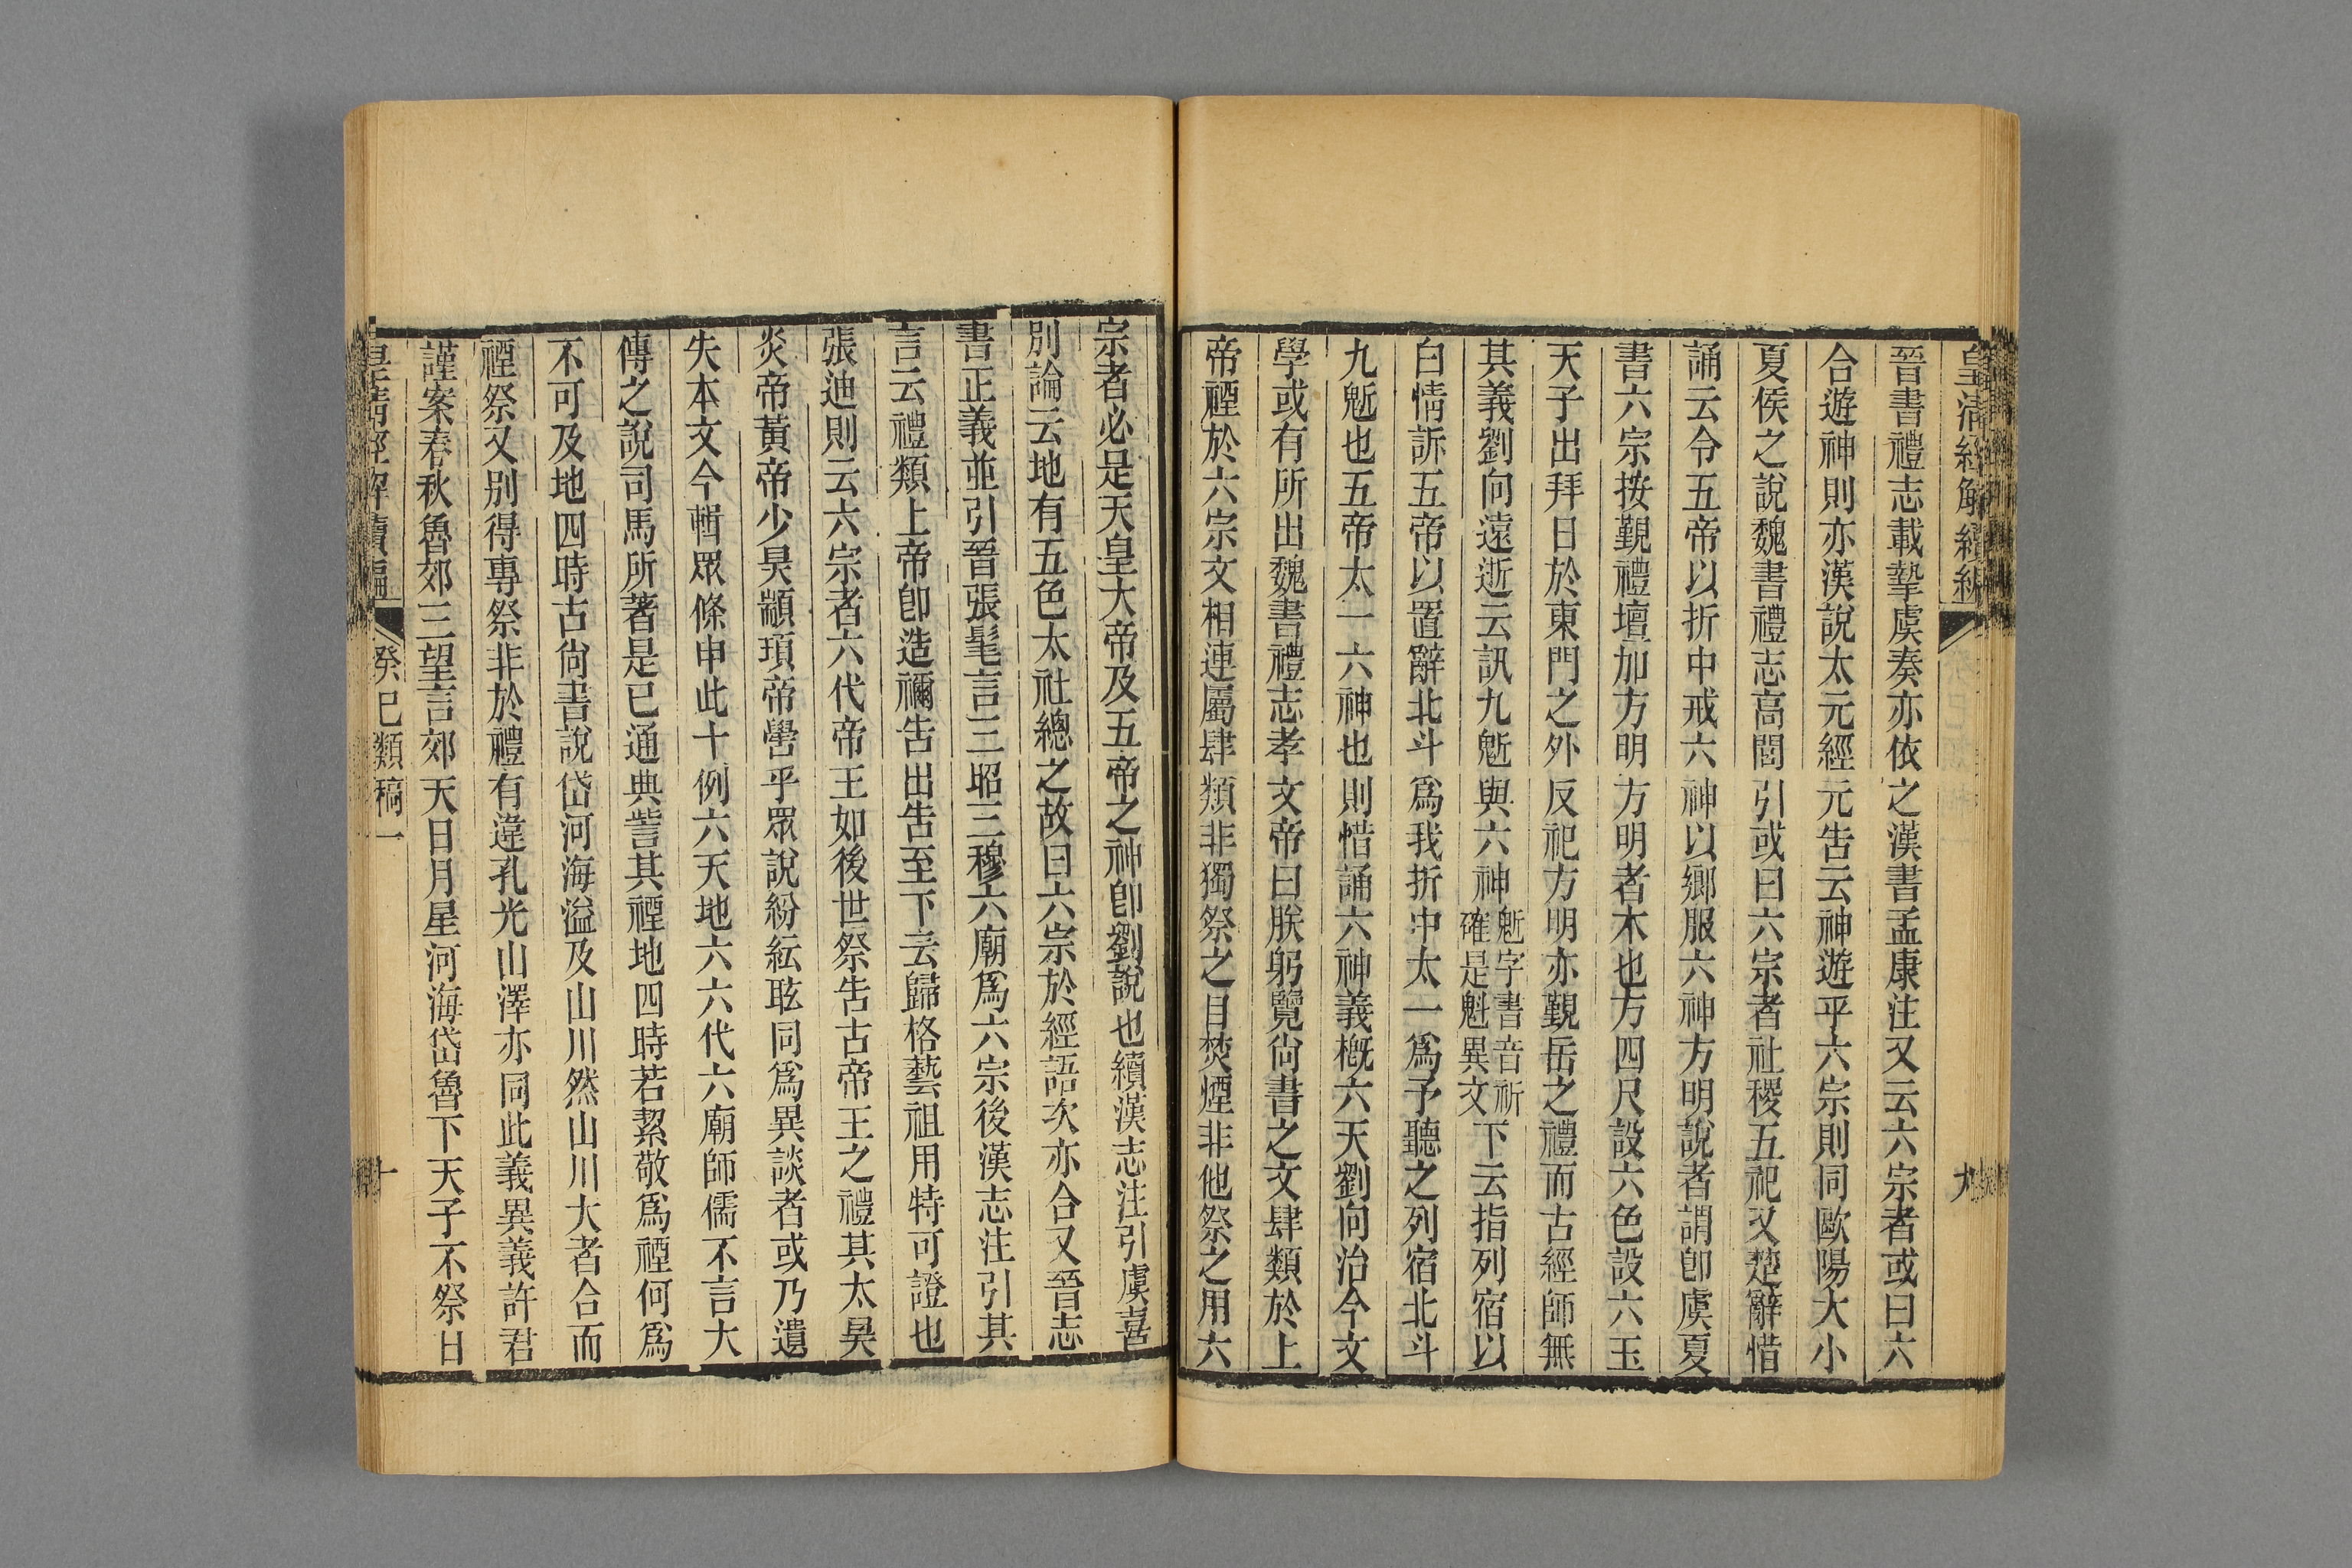 皇清經解續編
九
晉書禮志載摯虞奏亦依之漢書孟康注又云六宗者或曰六
合遊神則亦漢說太元經元告云神遊乎六宗則同歐陽大小
夏侯之說魏書禮志高閭引或曰六宗者社稷五祀又楚辭惜
誦云令五帝以折中戒六神以鄉服六神方明說者謂卽虞夏
書六宗按覲禮壇加方明方明者木也方四尺設六色設六玉
天子出拜日於東門之外反祀方明亦覲岳之禮而古經師無
其義劉向遠逝云訊九魁與六神魁字書音祈確是魁異文下云指列宿以
白情訴五帝以置辭北斗爲我折中太一爲予聽之列宿北斗
九魁也五帝太一六神也則惜誦六神義概六天劉向治今文
學或有所出魏書禮志孝文帝曰朕躬覽尙書之文肆類於上
帝禋於六宗文相連屬肆類非獨祭之目焚煙非他祭之用六
宗者必是天皇大帝及五帝之神卽劉說也續漢志注引虞喜
別論云地有五色太社總之故曰六宗於經語次亦合又晉志
書正義並引晉張髦言三昭三穆六廟爲六宗後漢志注引其
言云禮類上帝卽造禰告出告至下云歸格藝祖用特可證也
張迪則云六宗者六代帝王如後世祭告古帝王之禮其太昊
炎帝黃帝少昊顓頊帝嚳乎眾說紛紜聀同爲異談者或乃遺
失本文今輯眾條申此十例六天地六六代六廟師儒不言大
傳之說司馬所著是已通典訾其禋地四時若絜敬爲禋何爲
不可及地四時古尙書說岱河海溢及山川然山川大者合而
禋祭又別得專祭非於禮有違孔光山澤亦同此義異義許君
謹案春秋魯郊三望言郊天日月星河海岱魯下天子不祭日
皇清經解續編
癸巳類稿一
十